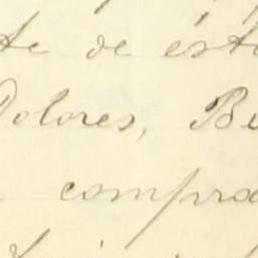 te de ésta
Dolores, Be
compra